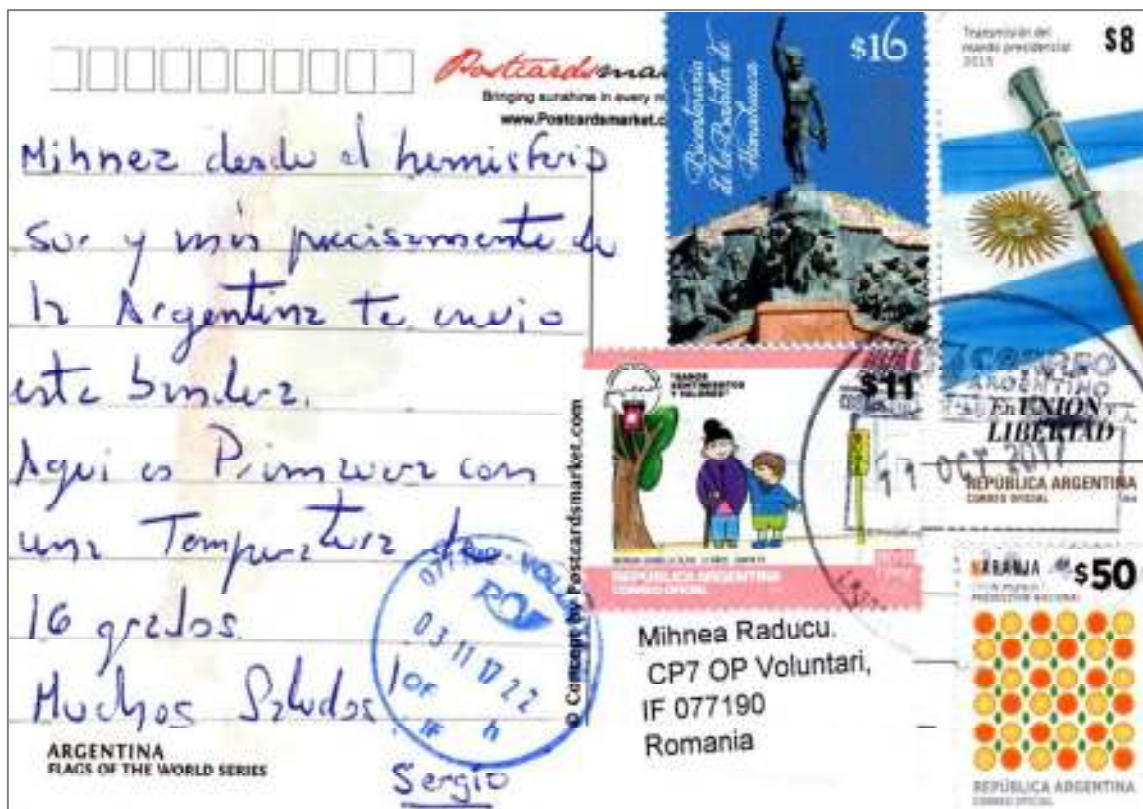 Postcardsmar
Bringing sunshine in every m
www.Postcardsmarket.c
Mihnea desde el hemisferio
sur y más precisamente de
la Argentina te envio
esta bandera.
Aqui es Primavera con
una Temperatura de
16 grados.
Muchos Saludos
Sergio
ARGENTINA
FLAGS OF THE WORLD SERIES
© Concept by Postcardsmarket.com
Bicentenario
de la Batalla de
Humahuaca
$16
Transmisión del
mando presidencial
2015
$8
En UNIÓN Y
LIBERTAD
REPÚBLICA ARGENTINA
CORREO OFICIAL
"SANOS
SENTIMIENTOS
Y VALORES"
$11
REPÚBLICA ARGENTINA
CORREO OFICIAL
CORREO
ARGENTINO
OCT 2017
NARANJA
$50
REPÚBLICA ARGENTINA
CORREO OFICIAL
077190 - VOLU
03 11 17 22
OF h
IF
Mihnea Raducu.
CP7 OP Voluntari,
IF 077190
Romania